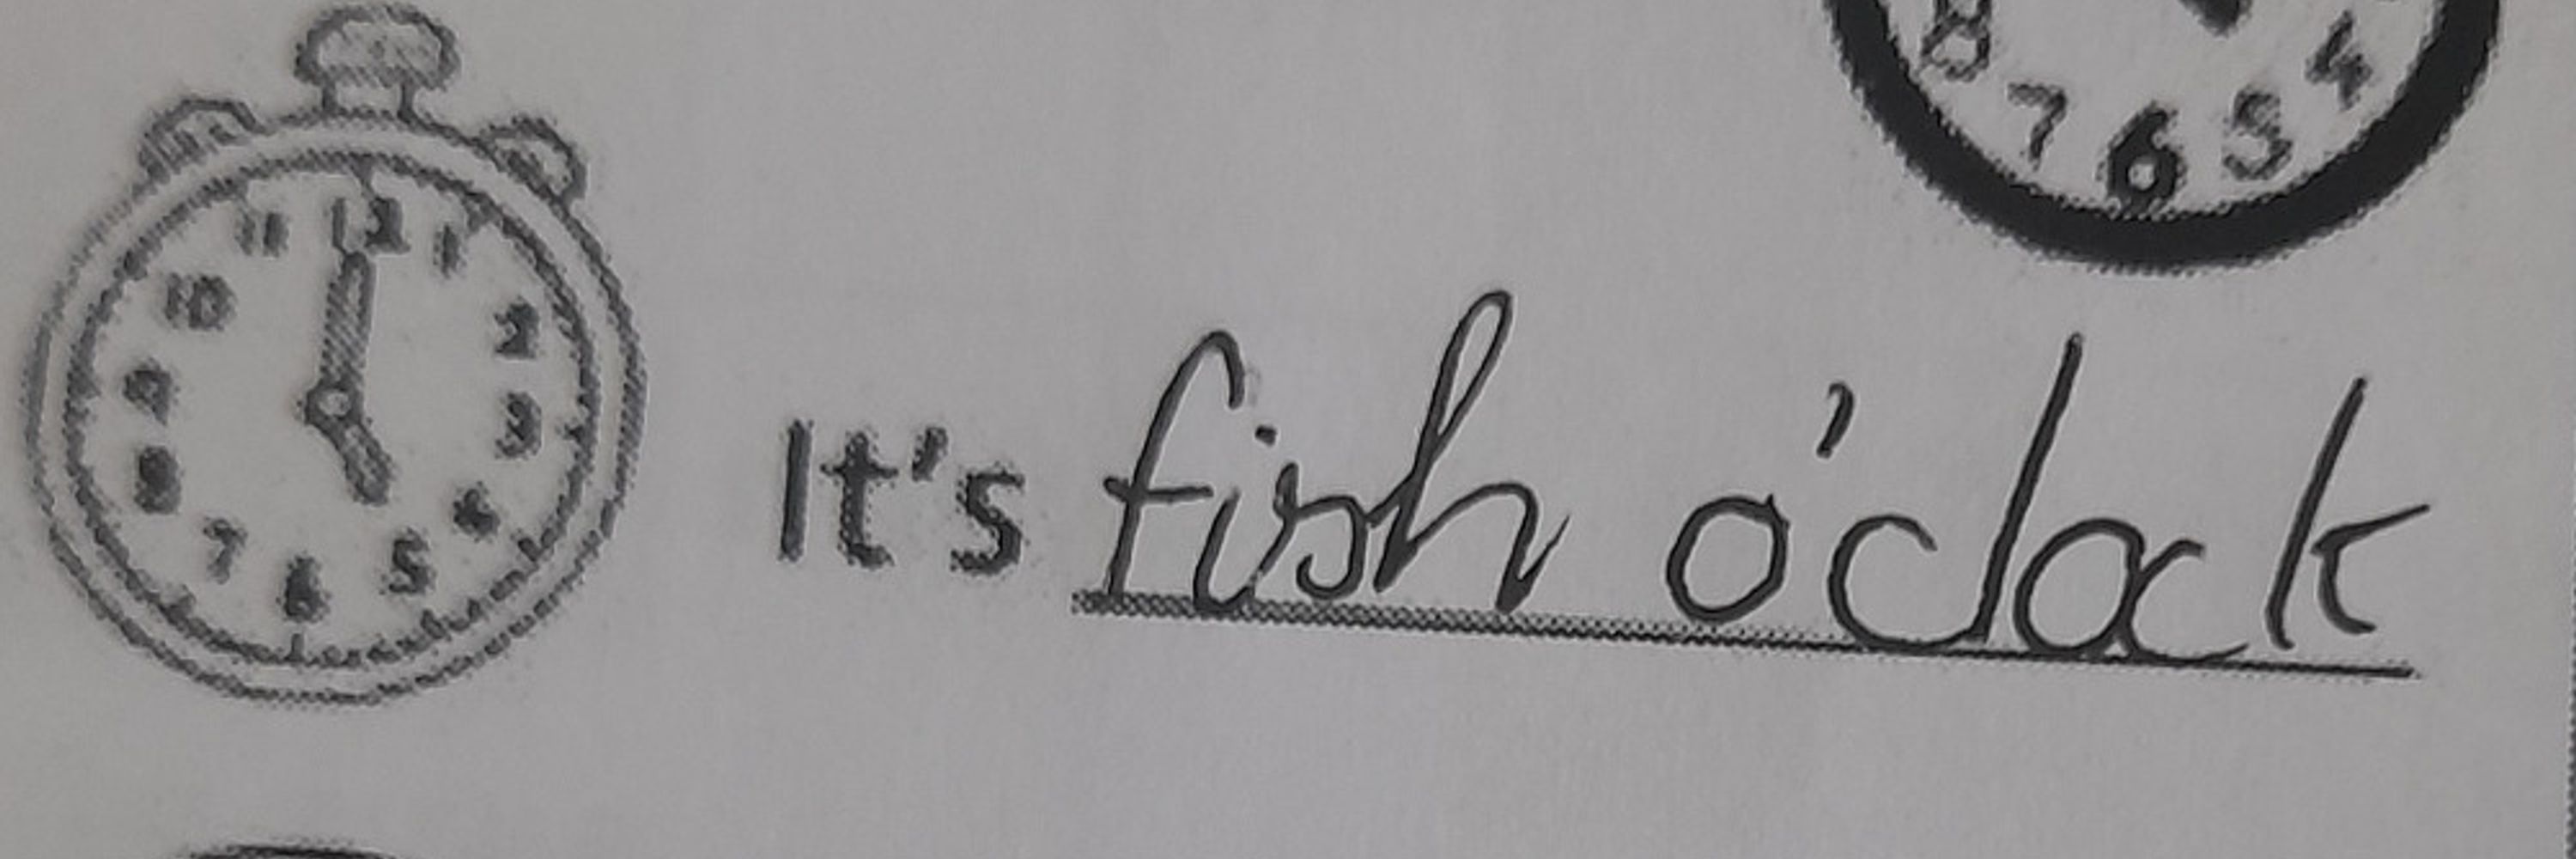 8 7 6 5 4
11 12 1
10 2
9 3
8 4
7 6 5
It's fish o'clock